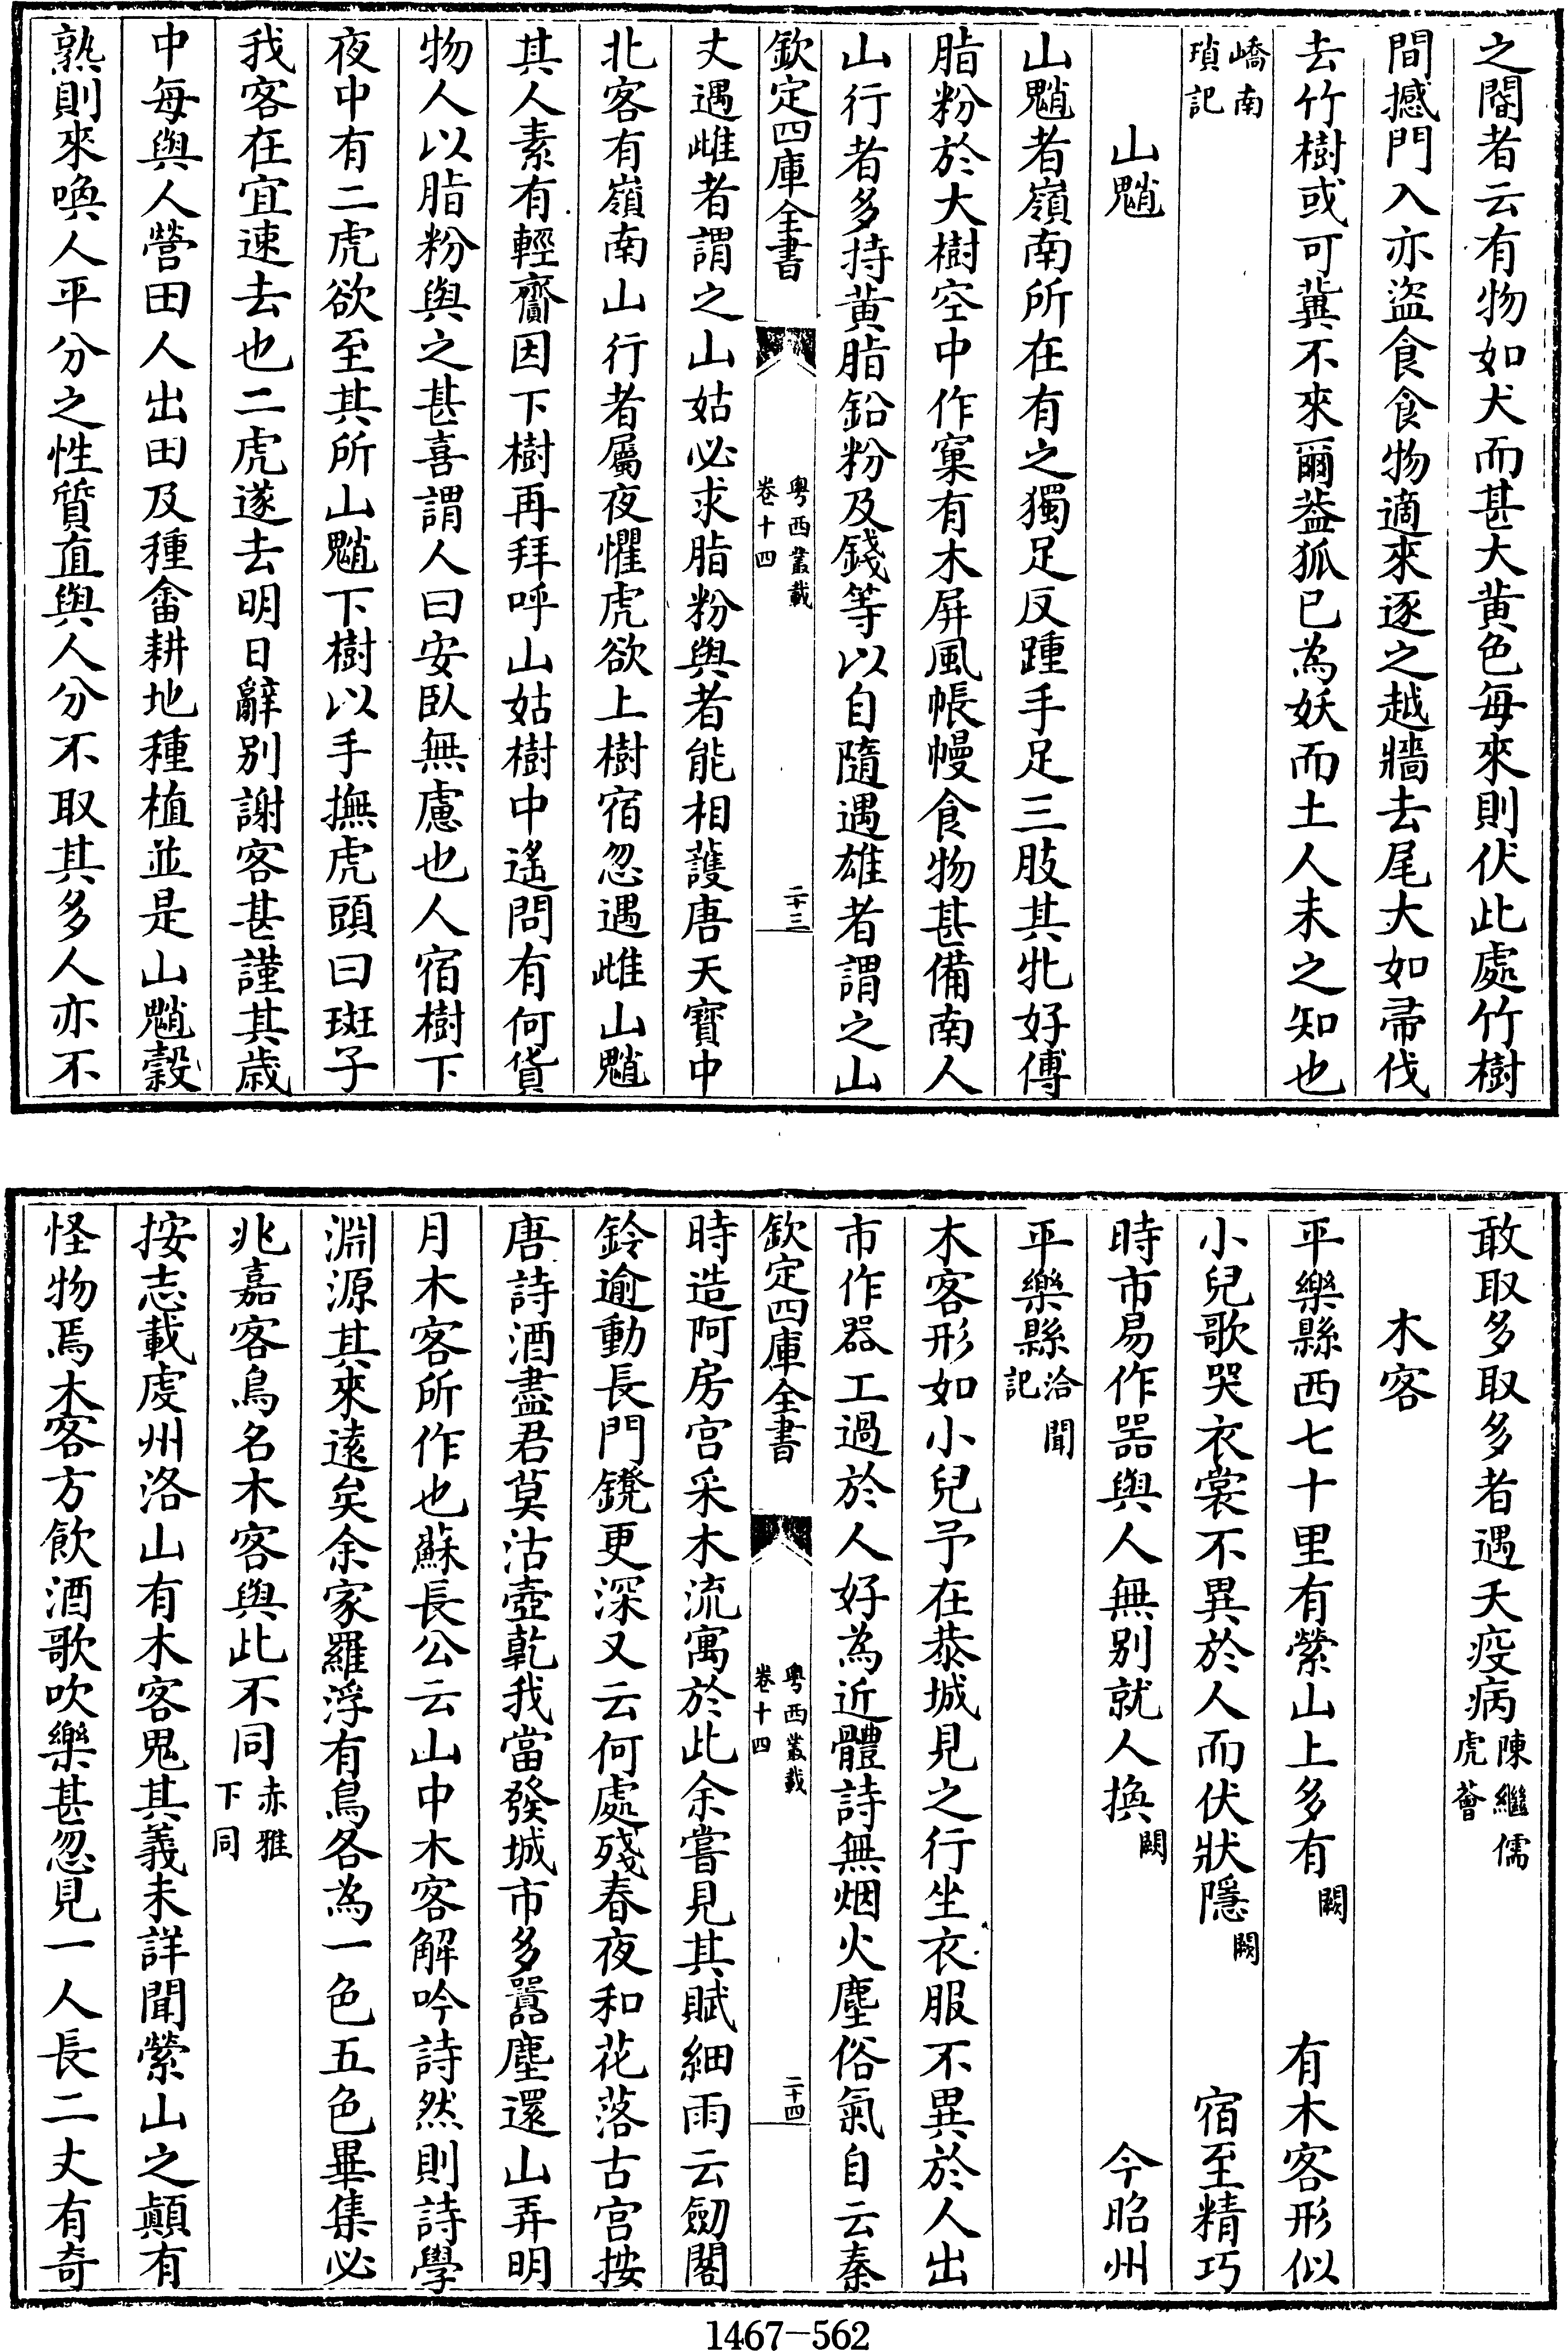 之間者云有物如犬而甚大黄色每來則伏此處竹樹
間撼門入亦盜食食物適來逐之越牆去尾大如帚伐
去竹樹或可冀不來爾葢狐已為妖而土人未之知也
嶠南
瑣記
山魈
山魈者嶺南所在有之獨足反踵手足三肢其牝好傅
脂粉於大樹空中作窠有木屏風帳幔食物甚備南人
山行者多持黄脂鉛粉及錢等以自隨遇雄者謂之山
欽定四庫全書
粵西叢載
卷十四
二十三
丈遇雌者謂之山姑必求脂粉與者能相護唐天寳中
北客有嶺南山行者屬夜懼虎欲上樹宿忽遇雌山魈
其人素有輕齎因下樹再拜呼山姑樹中遙問有何貨
物人以脂粉與之甚喜謂人曰安臥無慮也人宿樹下
夜中有二虎欲至其所山魈下樹以手撫虎頭曰斑子
我客在宜速去也二虎遂去明日辭别謝客甚謹其歳
中每與人營田人出田及種畬耕地種植並是山魈穀
熟則來喚人平分之性質直與人分不取其多人亦不
敢取多取多者遇天疫病
陳繼儒
虎薈
木客
平樂縣西七十里有縈山上多有闕有木客形似
小兒歌哭衣裳不異於人而伏狀隱闕宿至精巧
時市易作器與人無别就人換闕今昭州
平樂縣
洽聞
記
木客形如小兒予在恭城見之行坐衣服不異於人出
市作器工過於人好為近體詩無烟火塵俗氣自云秦
欽定四庫全書
粵西叢載
卷十四
二十四
時造阿房宫采木流寓於此余嘗見其賦細雨云劒閣
鈴逾動長門鐙更深又云何處殘春夜和花落古宫按
唐詩酒盡君莫沽壺乾我當發城市多囂塵還山弄明
月木客所作也蘇長公云山中木客解吟詩然則詩學
淵源其來逺矣余家羅浮有鳥各為一色五色畢集必
兆嘉客鳥名木客與此不同
赤雅
下同
按志載虔州洛山有木客鬼其義未詳聞縈山之顛有
怪物焉木客方飲酒歌吹樂甚忽見一人長二丈有奇
1467－562